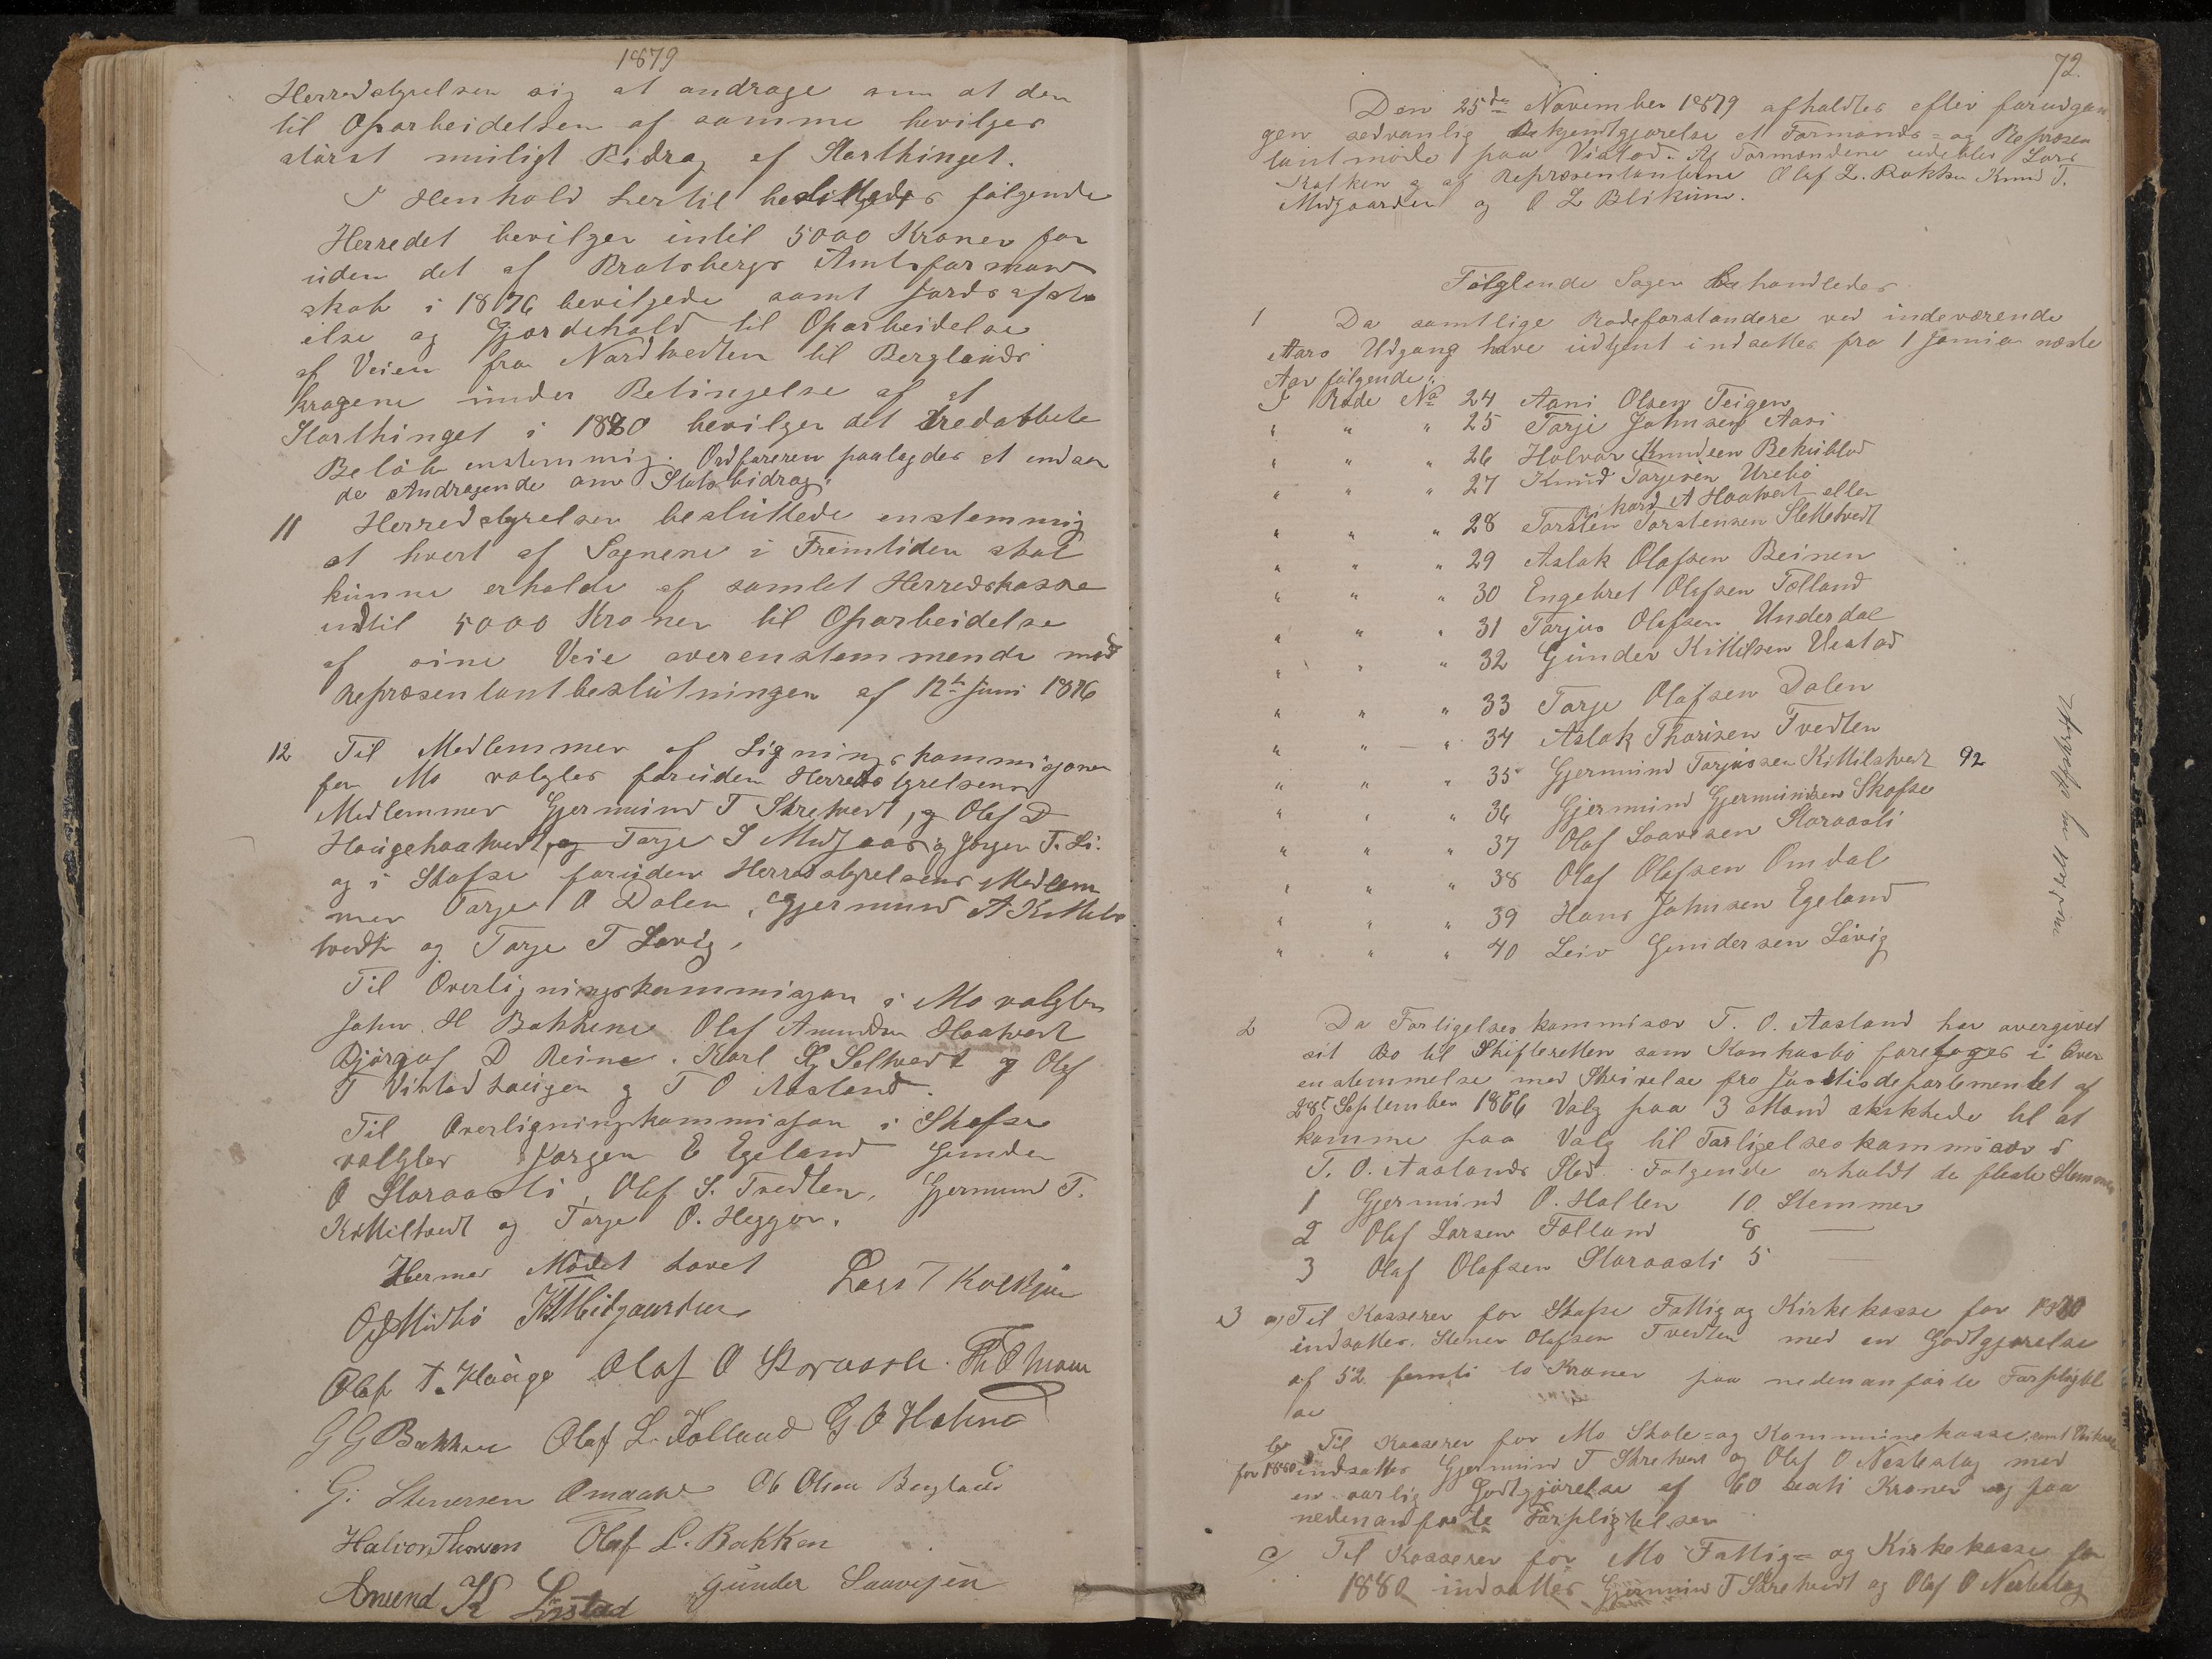 1879
Herredstyrelsen sig at andrage om at der
til Oparbeidelsen af samme bevilges
størst muligt Bidrag af Storthinget.
I Henhold hertil besluttedes følgende
Herredet bevilger intil 5000 Kroner for
uden det af Bratsbergs Amtsforman
skab i 1876 bevilgede samt Jords afsta
else og Gjordehold til Oparbeidelse
af Veien fra Nordtvedten til Berglands
kragene under Betingelse af at
Storthinget i 1880 bevilger det
Beløb enstemmig. Ordføreren paalagdes at indsen
de Andragende om Statsbidrag.
11 Herredstyrelsen besluttede enstemmig
at hvert af Sognene i Fremtiden skal
kunne erholde af samlet Herredskasse
indtil 5000 Kroner til Oparbeidelse
af sine Veie overenstemmende med
Repræsentantbeslutningen af 12te Juni 1876
12 Til Medlemmer af Ligningskommisjonen
for Mo valgtes foruden Herredstyrelsens
Medlemmer Gjermund T Skretvedt, og Olaf D
Haugehaatvedt, og Tarje S Midgaar og Jørgen T. Li.
og i Skafse foruden Herredstyrelsens Medlem
mer Tarje O Dalen, Gjermund A Kittils
tvedt og Tarje T Løvig,
Til Overligningskommisjon i Mo valgtes
John H Bakkene Olaf Amundsen Haatvedt
Bjørguf D Reine. Karl Seltvedt og Olaf
T Vistadhaugen og T O Aasland.
Til Overligningskommisjon i Skafse
valgtes Jørgen E Egeland Gunder
O Storaasli, Olaf S. Tvedten, Gjermund T.
Kittiltvedt og Tarje O. Heggor.
Hermed Mødet hævet Lars T Kolkjen
O Midbø K Midgaarden
Olaf T. Hauge Olaf O Storaasli. Th O Moen
G G Bakken Olaf L. Folland G O Holme
G. Stenersen Omdal Ob Olsen Bergland
Halvor Thorsen Olaf L. Bakken
Amund K Listad Gunder Saavesen
72.
Den 25de November 1879 afholdtes efter forudgaa
gen sedvanlig Bekjendtgjørelse et Formands- og Repræsen
tantmøde paa Vistad. Af Formændene udeblev Lars
Kolken og af Repræsentanterne Olaf L. Bakken Knud T.
Midgaarden og O L Blikum.
Følglende Sager behandledes
1 Da samtlige Rodeforstandere ved indeværende
Aars Udgang have udtjent indsattes fra 1 Januar næste
Aar følgende:
I Rode No 24 Aani Olsen Teigen
" " " 25 Tarje Johnsen Aasi
" " " 26 Halvor Knudsen Bekublod
" " " 27 Knud Tarjesen Urebø
A Haatvedt eller
" " " 28 Torsten Torstensen Slettetvedt
" " " 29 Aslak Olafsen Beinen
" " " 30 Engebret Olafsen Folland
" " " 31 Tarjus Olafsen Underdal
" " " 32 Gunder Kittilsen Vestad
" " " 33 Tarje Olafsen Dalen
" " " 34 Aslak Thorisen Tvedten
" " " 35 Gjermund Tarjussen Kittilstvedt 92
" " " 36 Gjermund Gjermundsen Skafse
" " " 37 Olaf Saavesen Storaasli
" " " 38 Olaf Olafsen Omdal
" " " 39 Hans Johnsen Egeland
" " " 40 Leiv Gundersen Løvig
meddelt mig Afskrift
2 Da Forligelseskommisær T. O. Aasland har overgivet
sit Bo til Skifteretten som Konkursbo foretages i Over
enstemmelse med Skrivelse fra Justisdepartementet af
28de September 1866 Valg paa 3 Mand skikkede til at
komme paa Valg til Forligelseskommisær i
T. O. Aaslands Sted. Følgende erholdt de fleste Stemmer
1 Gjermund O. Holten 10 Stemmer
2 Olaf Larsen Folland 8 —
3 Olaf Olafsen Storaasli 5 —
3 a) Til Kasserer for Skafse Fattig og Kirkekasse for 1880
indsattes Stener Olafsen Tvedten med en Godtgjørelse
af 52 femti to Kroner paa nedenanførte Forpligtel
ser
b Til Kasserer for Mo Skole- og Kommunekasse samt Veikasse
for 1880 indsattes Gjermund T Skretvedt og Olaf O Nesteslog med
en aarlig Godtgjørelse af 60 sexti Kroner og paa
nedenanførte Forpligtelser
c) Til Kasserer for Mo Fattig- og Kirkekasse for
1880 indsattes Gjermund T Skretvedt og Olaf O Nesteslog